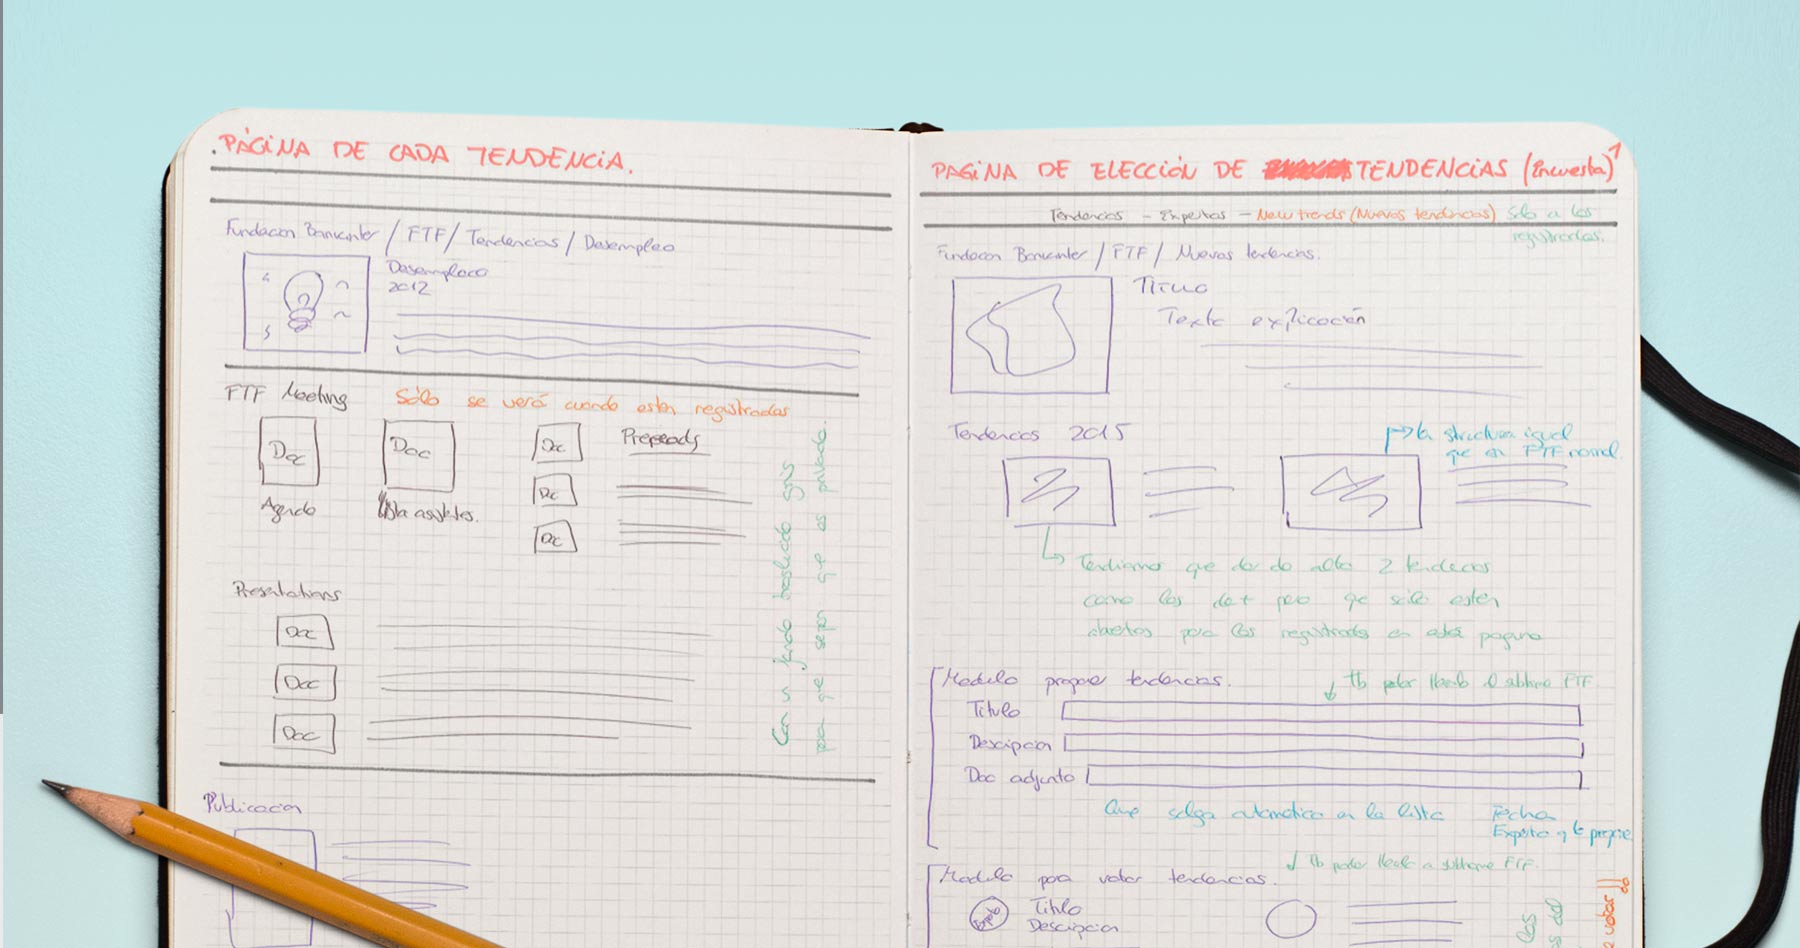 .PÁGINA DE CADA TENDENCIA.
Fundacion Bankinter / FTF / Tendencias / Desempleo
Desempleo
2012
FTF Meeting
Sólo se verá cuando esten registrados
Doc
Doc
Doc
Prereads
Doc
Doc
Agenda
lista asistentes.
Presentations
Doc
Doc
Doc
Con un fondo gris
para que sepan que es privado.
Publicacion
PAGINA DE ELECCIÓN DE TENDENCIAS (Encuesta)
Tendencias - Expertos - New trends (Nuevas tendencias) Sólo a los
registrados.
Fundacion Bankinter / FTF / Nuevas tendencias.
Titulo
Texto explicación
Tendencias 2015
la structura igual
que en FTF normal.
Tendriamos que dar de alta 2 tendecias
como las de + pero que sólo esten
abiertas para los registrados en esta pagina
Modulo proponer tendencias.
tb poder el subhome FTF
Titulo
Descipcion
Doc adjunto
Que salga automatico en la lista
Fecha
Experto q lo propone
Modulo para votar tendencias.
tb poder a subhome FTF.
Experto
Titulo
Descipcion
los
del
votar!!